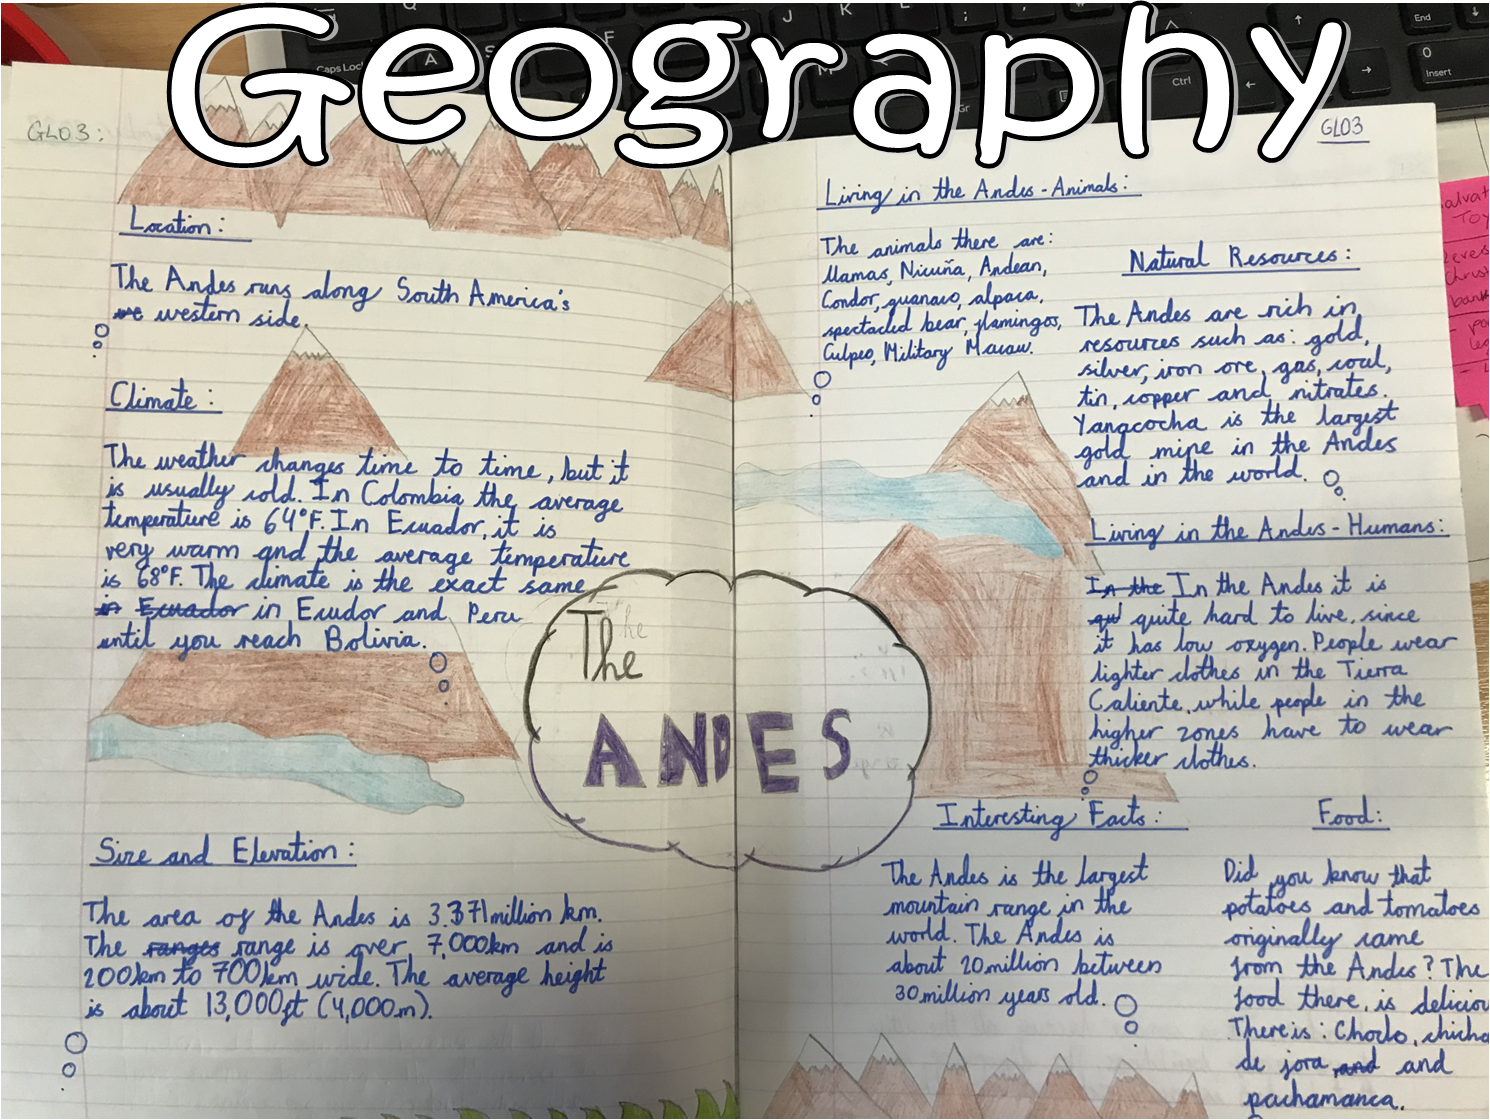 Geography
GLO3:
Location:
The Andes runs along South America's
western side.
Climate:
The weather changes time to time, but it
is usually cold. In Colombia the average
temperature is 64°F. In Ecuador, it is
very warm and the average temperature
is 68°F. The climate is the exact same
in Ecuador in Ecudor and Peru
until you reach Bolivia.
Size and Elevation:
The area of the Andes is 3.371million km.
The ranges range is over 7,000km and is
200km to 700km wide. The average height
is about 13,000ft (4,000m).
The
ANDES
GLO3
Living in the Andes - Animals:
The animals there are:
llamas, Nicuña, Andean,
Condor, guanaco, alpaca,
spectacled bear, flamingos,
Culpeo, Military Macaw.
Natural Resources:
The Andes are rich in
resources such as: gold,
silver, iron ore, gas, coal,
tin, copper and nitrates.
Yanacocha is the largest
gold mine in the Andes
and in the world.
Living in the Andes - Humans:
In the In the Andes it is
qui quite hard to live, since
it has low oxygen. People wear
lighter clothes in the Tierra
Caliente, while people in the
higher zones have to wear
thicker clothes.
Interesting Facts:
The Andes is the largest
mountain range in the
world. The Andes is
about 20million between
30million years old.
Food:
Did you know that
potatoes and tomatoes
originally came
from the Andes? The
food there, is deliciou
There is: Choclo, chicha
de jora and and
pachamanca.
Caps Lock
A
S
F
J
K
L
M
Ctrl
End
0
Insert